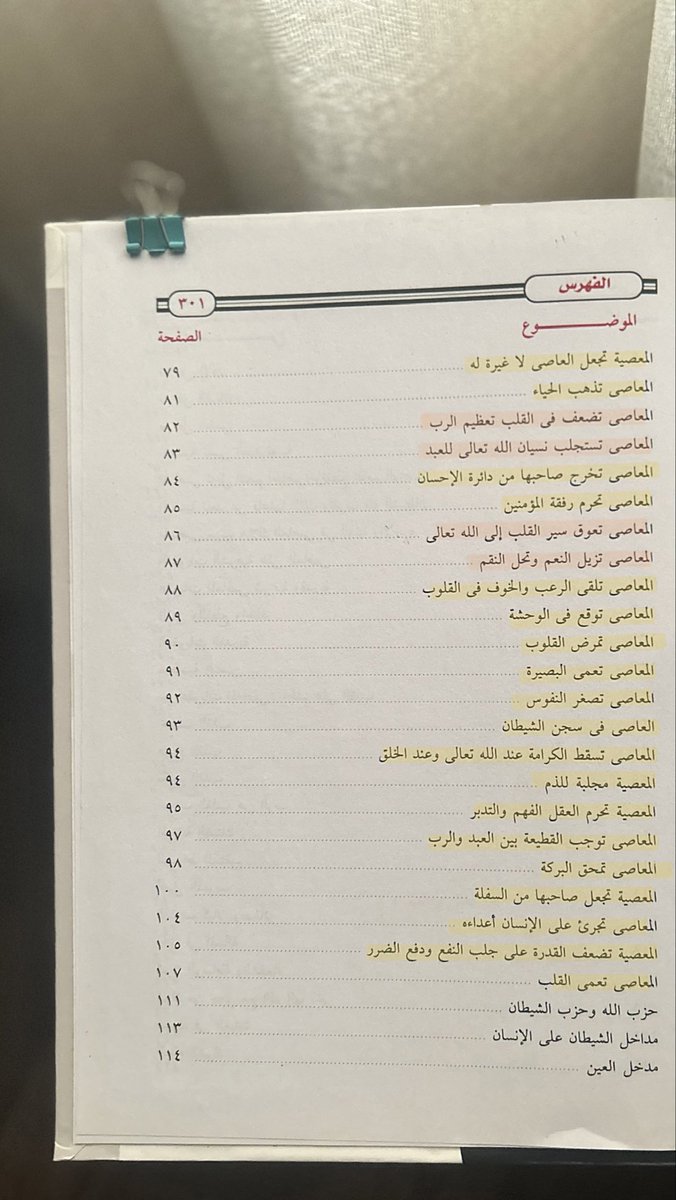 الفهرس
٣٠١
الموضـــــــوع الصفحة
المعصية تجعل العاصى لا غيرة له ٧٩
المعاصى تذهب الحياء ٨١
المعاصى تضعف فى القلب تعظيم الرب ٨٢
المعاصى تستجلب نسيان الله تعالى للعبد ٨٣
المعاصى تخرج صاحبها من دائرة الإحسان ٨٤
المعاصى تحرم رفقة المؤمنين ٨٥
المعاصى تعوق سير القلب إلى الله تعالى ٨٦
المعاصى تزيل النعم وتحل النقم ٨٧
المعاصى تلقى الرعب والخوف فى القلوب ٨٨
المعاصى توقع فى الوحشة ٨٩
المعاصى تمرض القلوب ٩٠
المعاصى تعمى البصيرة ٩١
المعاصى تصغر النفوس ٩٢
العاصى فى سجن الشيطان ٩٣
المعاصى تسقط الكرامة عند الله تعالى وعند الخلق ٩٤
المعصية مجلبة للذم ٩٤
المعصية تحرم العقل الفهم والتدبر ٩٥
المعاصى توجب القطيعة بين العبد والرب ٩٧
المعاصى تمحق البركة ٩٨
المعصية تجعل صاحبها من السفلة ١٠٠
المعاصى تجرئ على الإنسان أعداءه ١٠٤
المعصية تضعف القدرة على جلب النفع ودفع الضرر ١٠٥
المعاصى تعمى القلب ١٠٧
حزب الله وحزب الشيطان ١١١
مداخل الشيطان على الإنسان ١١٣
مدخل العين ١١٤